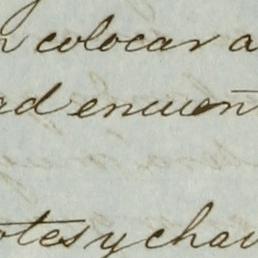 n colocar a
ad encuen
otes y chau